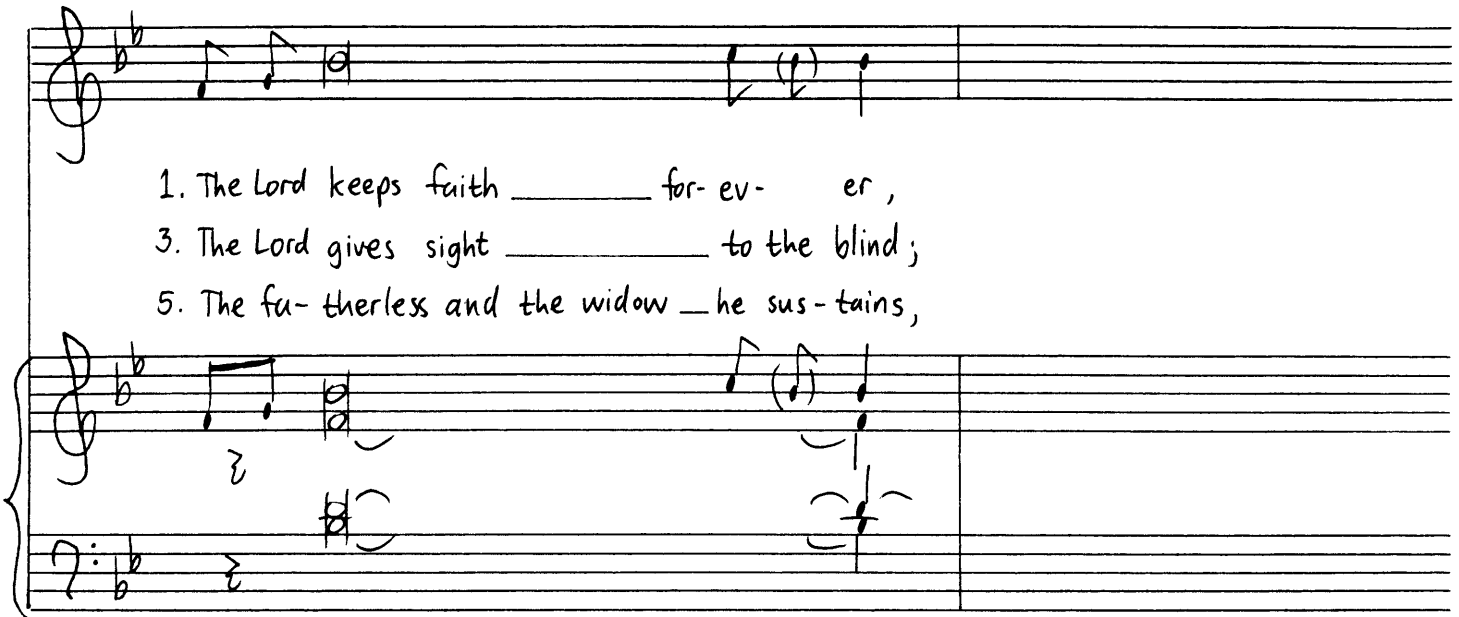 1. The Lord keeps faith ______ for- ev- er,
3. The Lord gives sight ______ to the blind;
5. The fa- therless and the widow __ he sus- tains,